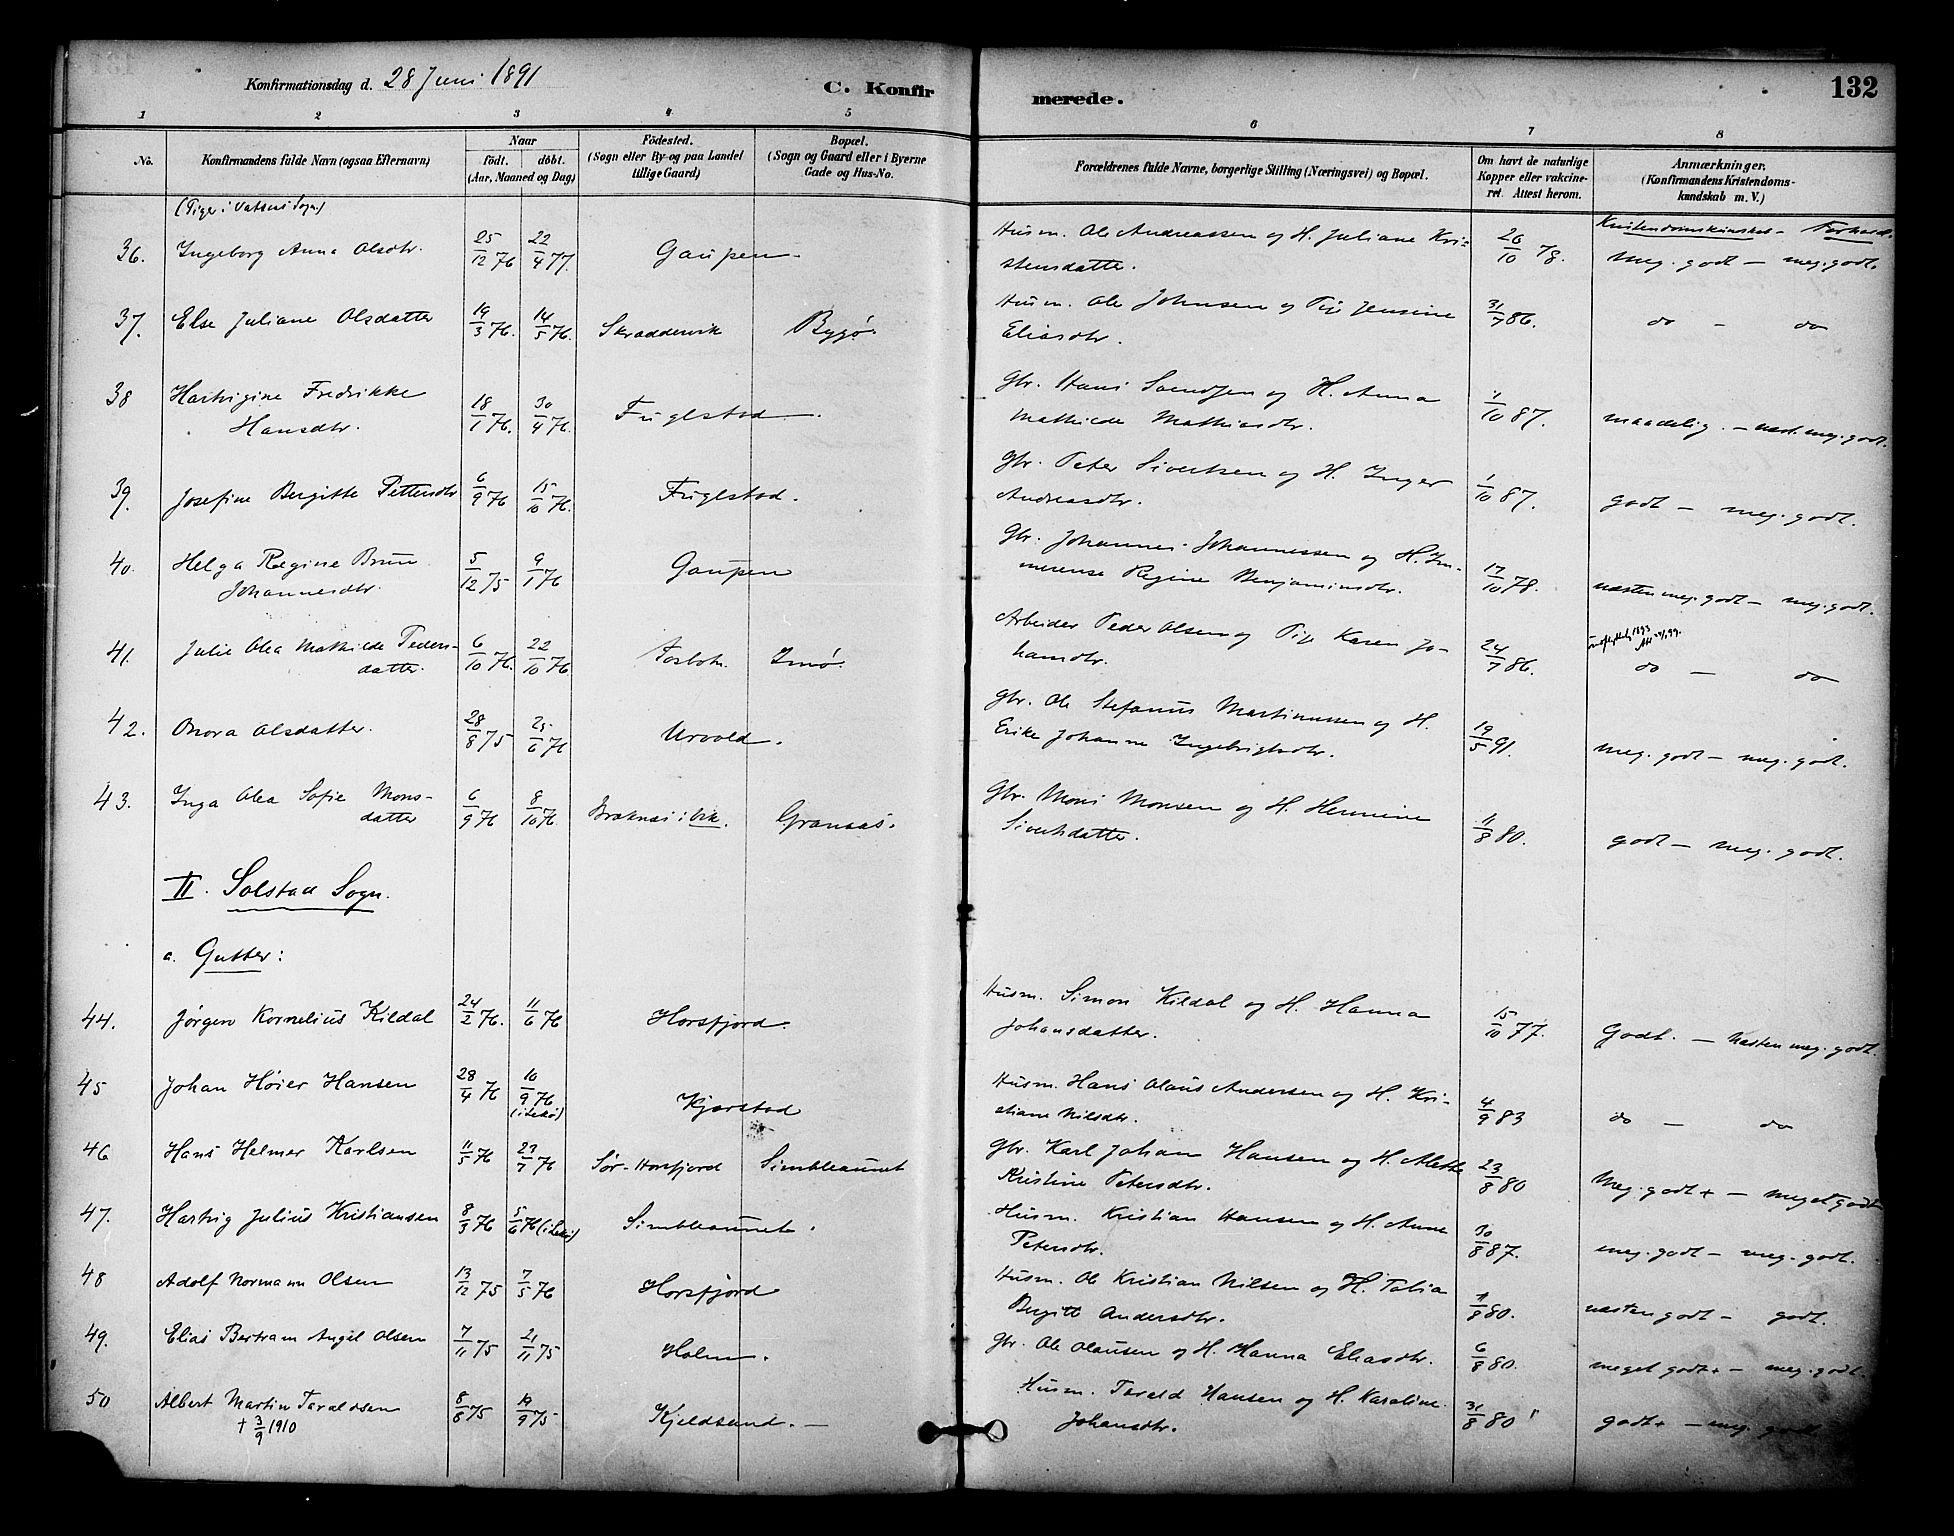 Konfirmationsdag d. 28 Juni 1891
C. Konfirmerede.
132
1 2 3 4 5 6 7 8
No.
Konfirmandens fulde Navn (ogsaa Efternavn)
Naar
født. døbt.
(Aar, Maaned og Dag)
Födested.
(Sogn eller By- og paa Landet
tillige Gaard)
Bopæl.
(Sogn og Gaard eller i Byerne
Gade og Hus-No.
Forældrenes fulde Navne, borgerlige Stilling (Næringsvei) og Bopæl.
Om havt de naturlige
Kopper eller vakcine-
ret. Attest herom.
Anmærkninger.
(Konfirmandens Kristendoms-
kundskab m. V.)
(Piger i Sogn)
Kristendomskundskab – Forhold.
36. Ingeborg Anna Olsdtr. 25/12 76 22/4 77. Gaupen Husm. Ole Andreassen og H. Juliane Kri-
stensdatter. 26/10 78. meg. godt – meg. godt.
37. Else Juliane Olsdatter 19/3 76. 14/5 76. Skraddervik Bygø. Husm. Ole Johnsen og Pige Jensine
Eliasdtr. 31/7 86. do – do
38 Hartvigine Fredrikke
Hansdtr. 18/1 76. 30/4 76. Fuglstad Gbr. Hans og H. Anna
Mathilde Mathiasdtr. 1/10 87. maadelig. – næst. meg. godt.
39. Josefine Bergitte Pettersdtr 6/9 76 15/10 76. Fuglstad. Gbr. Peter Sivertsen og H. Inger
Andreasdtr. 1/10 87. godt – meg. godt.
40. Helga Regine Brun
Johannesdtr. 5/12 75 9/1 76 Gaupen Gbr. Johannes Johannessen og H. Em-
merense Regine Benjaminsdtr. 17/10 78. næsten meg. godt – meg. godt.
41. Julie Olea Mathilde Peders-
datter. 6/10 76. 22/10 76 Imø. Arbeider Peder Olsen og Pige Karen Jo-
hansdtr. 24/7 86. do – do
42. Olsdatter. 28/8 75 25/6 76 Urvold. Gbr. Ole Stefanus Martinussen og H.
Erike Johanne Ingebrigtsdtr. 19/5 91. meg. godt – meg. godt.
43. Inga Olea Sofie Mons-
datter 6/9 76 8/10 76. Bræknæs i Vik. Granaas. Gbr. Mons Monsen og H. Hermine
Sivertsdatter. 11/8 80. godt – meg. godt.
II. Solstad Sogn.
a. Gutter:
44. Jørgen Kornelius Kildal 24/2 76. 11/6 76 Horsfjord. Husm. Simon Kildal og H. Hanna
Johansdatter. 15/10 77. Godt. – Næsten meg. godt.
45 Johan Høier Hansen 28/4 76 10/9 76
(i Lekø) Kjærstad Husm. Hans Olaus Andersen og H. Kri-
stiane Nilsdtr. 4/9 83 do – do
46 Hans Helmer Karlsen 11/5 76 23/7 76 Sør-Horsfjord Simbleaunet Gbr. Karl Johan Hansen og H. Alette
Kristine Petersdtr. 23/8 80 Meg. godt + – meget godt
47. Hartvig Julius Kristiansen 8/3 76 5/6 76 (i Lekø) Simbleaunet. Husm. Kristian Hansen og H. Anne
Petersdtr. 30/8 87. meg. godt – meg. godt.
48 Adolf Normann Olsen 13/12 75 7/5 76 Horsfjord Husm. Ole Kristian Nilsen og H. Talia
Bergitte Andersdtr. 11/8 80. næsten godt – godt.
49. Elias Bertram Angel Olsen 7/11 75 21/11 75 Holm. Gbr. Ole Olausen og H. Hanna Eliasdtr. 6/8 80. meget godt + – meg. godt.
50 Albert Martin Taraldsen
+ 3/9 1910 8/8 75 19/9 75 Kjeldsund. – Husm. Tarald Hansen og H. Karoline
Johansdtr. 31/8 80 godt + – meg. godt